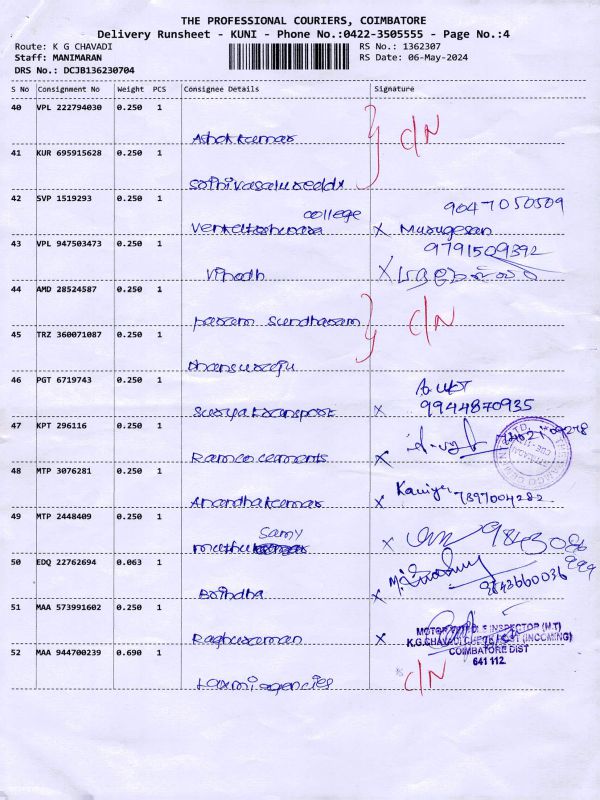 THE PROFESSIONAL COURIERS, COIMBATORE
Delivery Runsheet - KUNI - Phone No.:0422-3505555 - Page No.:4
Route: K G CHAVADI
RS No.: 1362307
Staff: MANIMARAN
RS Date: 06-May-2024
DRS No.: DCJB136230704
S No Consignment No Weight PCS Consignee Details Signature
40 VPL 222794030 0.250 1
Ashok kumar
C/N
41 KUR 695915628 0.250 1
42 SVP 1519293 0.250 1
college
9047050509
X Murugesan
43 VPL 947503473 0.250 1
9791509392
Vinodh X
44 AMD 28524587 0.250 1
Sundharam
C/N
45 TRZ 360071087 0.250 1
46 PGT 6719743 0.250 1
Surya transport X 9944870935
47 KPT 296116 0.250 1
Ramco cements X
48 MTP 3076281 0.250 1
Anandhakumar X 7397004282
49 MTP 2448409 0.250 1
Samy
muthu X
50 EDQ 22762694 0.063 1
Brindha X 9843660036
51 MAA 573991602 0.250 1
Raghuraman X
MOTOR VEHICLE INSPECTOR (N.T)
K.G.CHAVADI CHECK POST (INCOMING)
COIMBATORE DIST
641 112.
52 MAA 944700239 0.690 1
Laxmi agencies
C/N